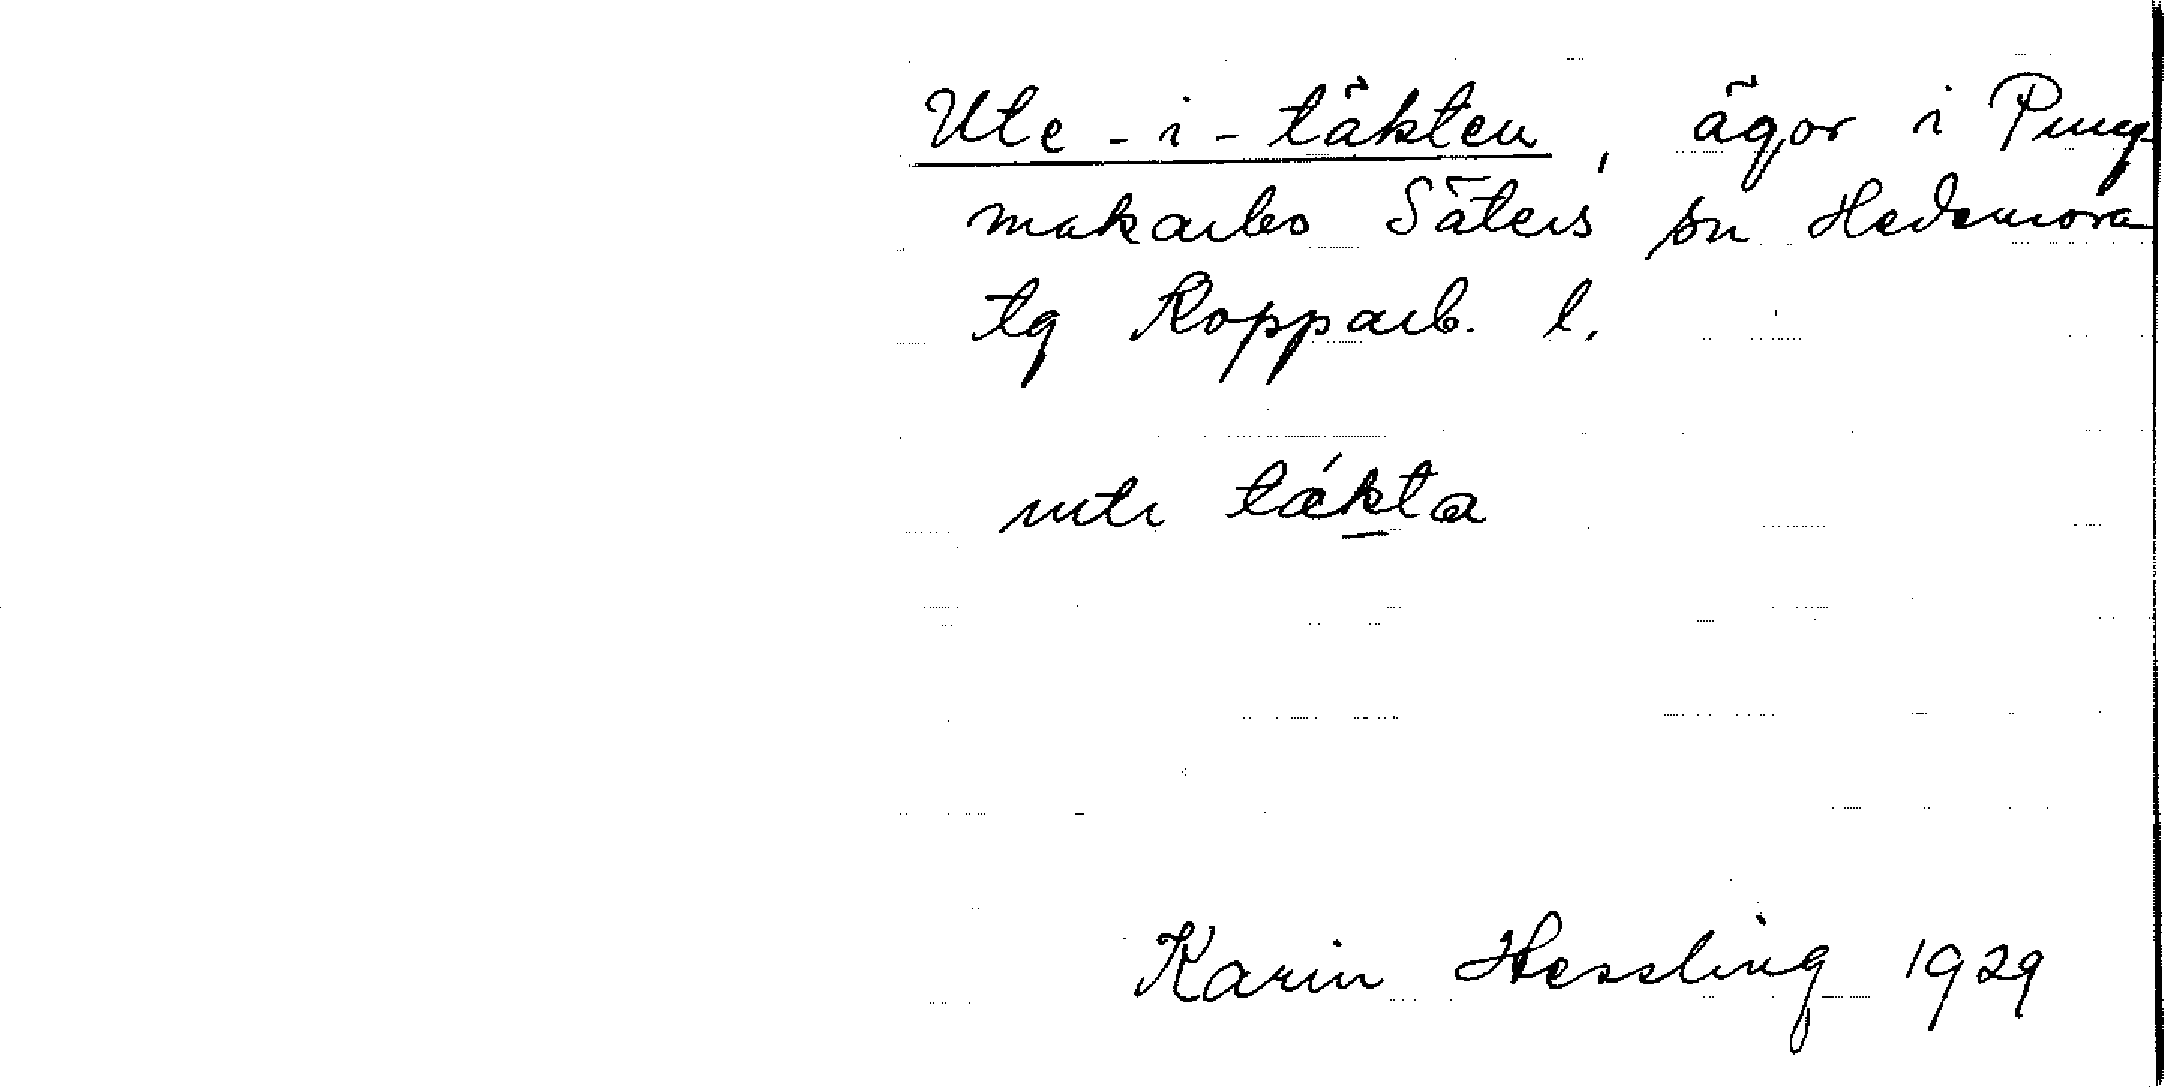 Ute-i-täkten, ägor i Pung
makarbo Säters sn Hedemora
tg Kopparb. l.
uti täkta
Karin Hessling 1929